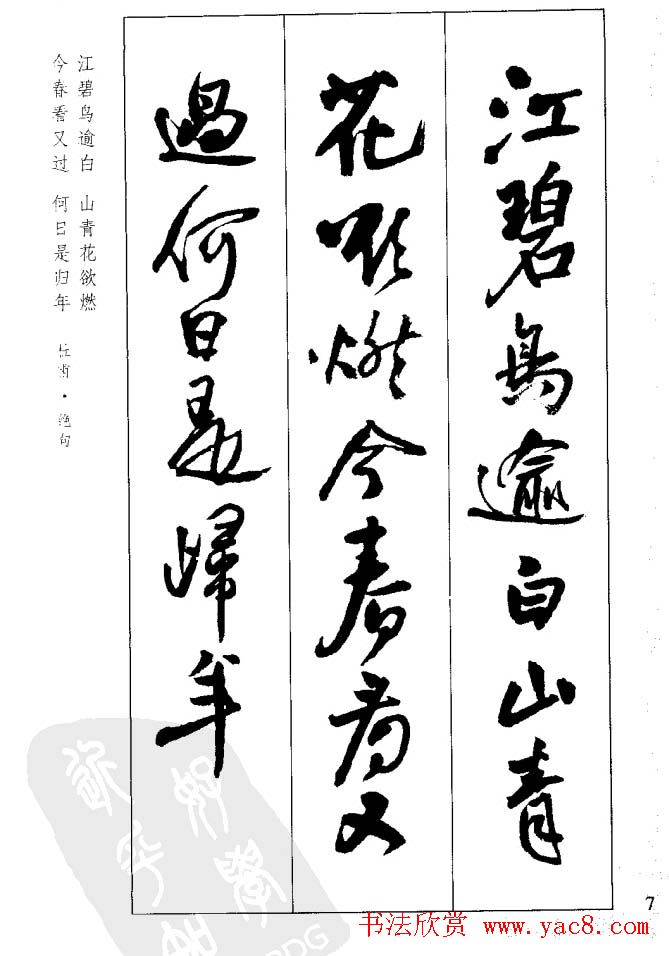 江碧鳥逾白山青
花欲燃今春看又
過何日是歸年
江碧鸟逾白 山青花欲燃
今春看又过 何日是归年
杜甫·绝句
7
书法欣赏 www.yac8.com